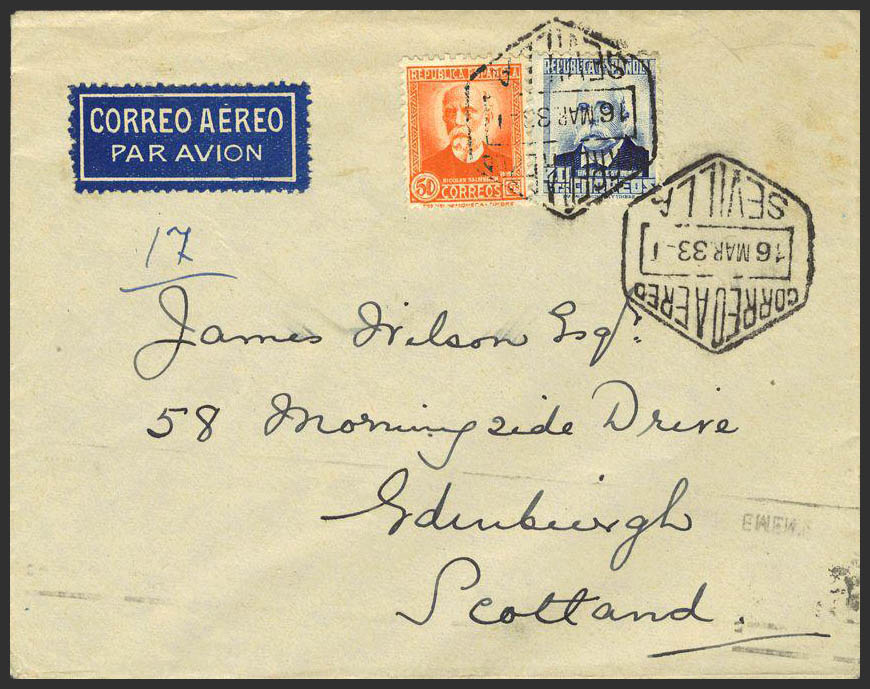 CORREO AÉREO
PAR AVION
REPUBLICA ESPAÑOLA
50
CORREOS
REPUBLICA ESPAÑOLA
40
SEVILLA
16 MAR. 33
SEVILLA
16 MAR. 33-1
CORREO AEREO
17
James Wilson Esqr.
58 Morningside Drive
Edinburgh
Scotland.